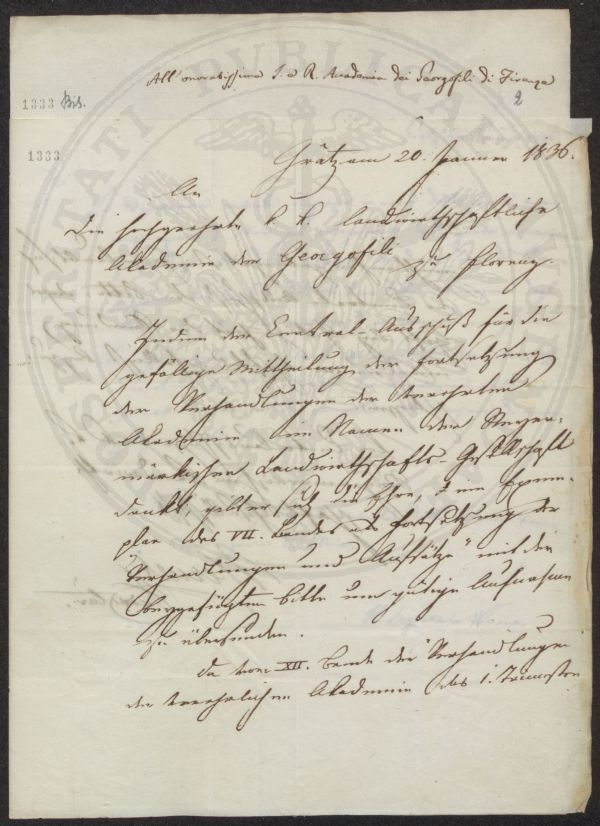 All' onorabilissima I. e R. Accademia dei Georgofili di Firenze
1333 Bis.
2
1333
Grätz am 20. Jänner 1836.
An
die hochgeehrte k. k. landwirthschaftliche
Akademie der Georgofili zu Florenz.
Indem der Central-Ausschuß für die
gefällige Mittheilung der Fortsetzung
der Verhandlungen der verehrten
Akademie im Namen der Steyer-
märkischen Landwirthschafts-Gesellschaft
dankt, gibt er sich die Ehre, ein Exem-
plar des VII. Bandes als Fortsetzung der
"Verhandlungen und Aufsätze" mit der
beygefügten Bitte um gütige Aufnahme
zu übersenden.
Da vom XII. Bande der "Verhandlungen
der verehrlichen Akademie das 1. Trimester